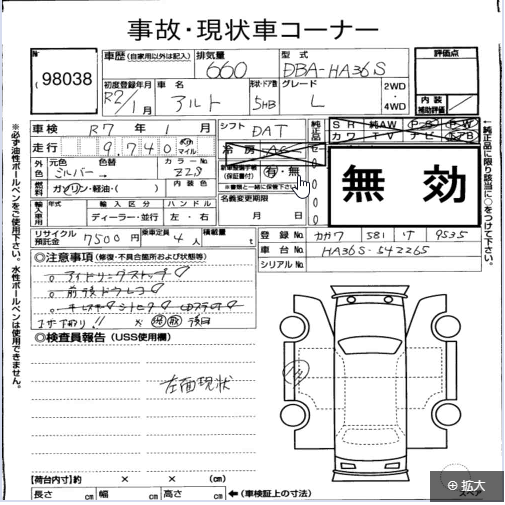 事故・現状車コーナー
№
98038
車歴(自家用以外は記入)
排気量
660
型式
DBA-HA36S
評価点
初度登録年月
R2/1月
車名
アルト
形状・ドア数
5HB
グレード
L
2WD
・
4WD
内装
補助評価
車検 R7年1月
シフト DAT
純正品
SR 純AW PS PW
カワ TV ナビ エアB
走行 9,740 km マイル
冷房 AC
外色 元色 色替
シルバー
カラー№
Z2S
新車整備手帳
(保証書付)
有・無
※書類と一緒に保管下さい
無効
燃料 ガソリン・軽油・( )
内装色
名義変更期限
月 日
輸入車用 年式
輸入区分
ディーラー・並行
ハンドル
左・右
リサイクル預託金 7500円
乗車定員 4人
積載量 t
登録№ カガワ 581 ｻ 9535
車台№ HA36S-542265
シリアル№
◎注意事項(修復・不具合箇所および状態等)
アイドリングストップ
前後ドラレコ
◎検査員報告(USS使用欄)
左面現状
【荷台内寸】約 × × (cm)
長さ cm 幅 cm 高さ cm ←(車検証上の寸法)
スペア
※必ず油性ボールペンをご使用下さい。水性ボールペンは使用できません。
←純正品に限り該当に○をつけて下さい。
拡大